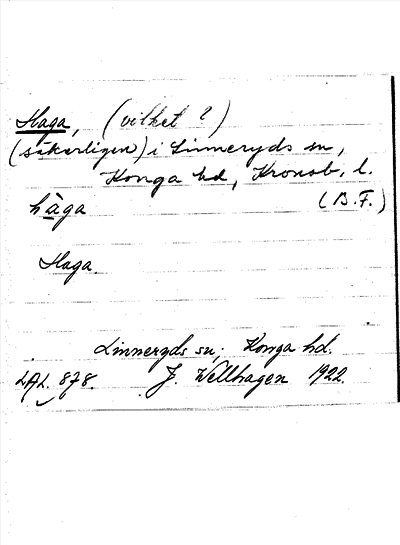 Haga, (vilket ?)
(säkerligen) i Linneryds sn,
Konga hd, Kronob. l.
håga (B.F.)
Haga.
Linneryds sn, Konga hd.
LAL. 878. J. Wellhagen 1922.